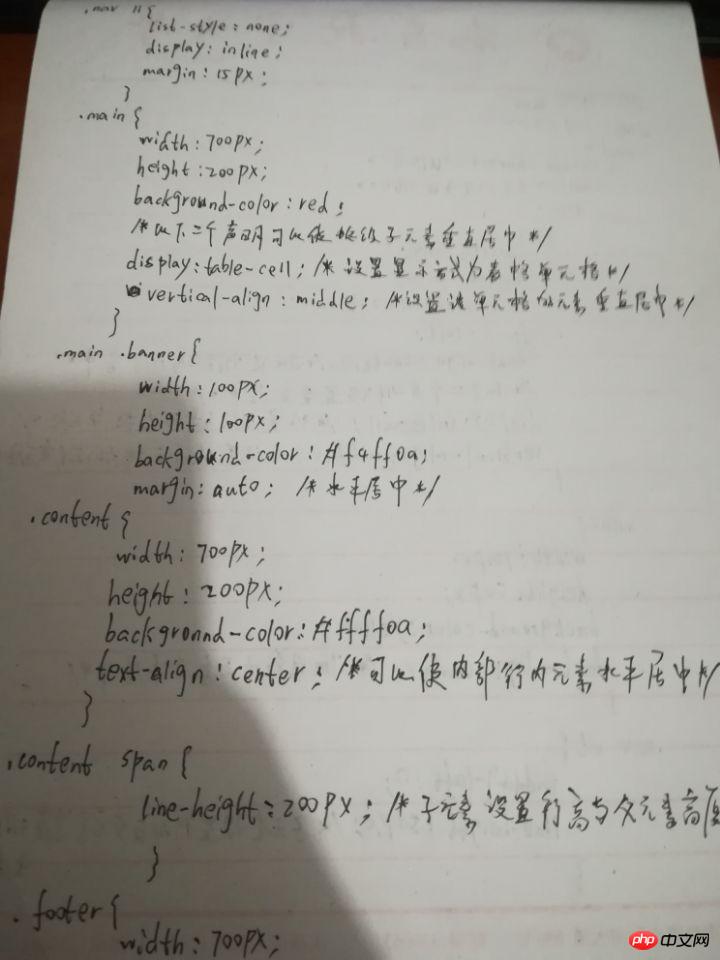 .nav li{
list-style: none;
display: inline;
margin: 15px;
}
.main{
width: 700px;
height: 200px;
background-color: red;
/*以下二个声明可以使块级子元素垂直居中*/
display: table-cell; /*设置显示方式为表格单元格*/
vertical-align: middle; /*设置该单元格的元素垂直居中*/
}
.main .banner{
width: 100px;
height: 100px;
background-color: #f4ff0a;
margin: auto; /*水平居中*/
.content{
width: 700px;
height: 200px;
background-color: #ffff0a;
text-align: center; /*可以使内部行内元素水平居中*/
}
.content span{
line-height: 200px; /*子元素设置行高与父元素高度
}
.footer{
width: 700px;
php 中文网